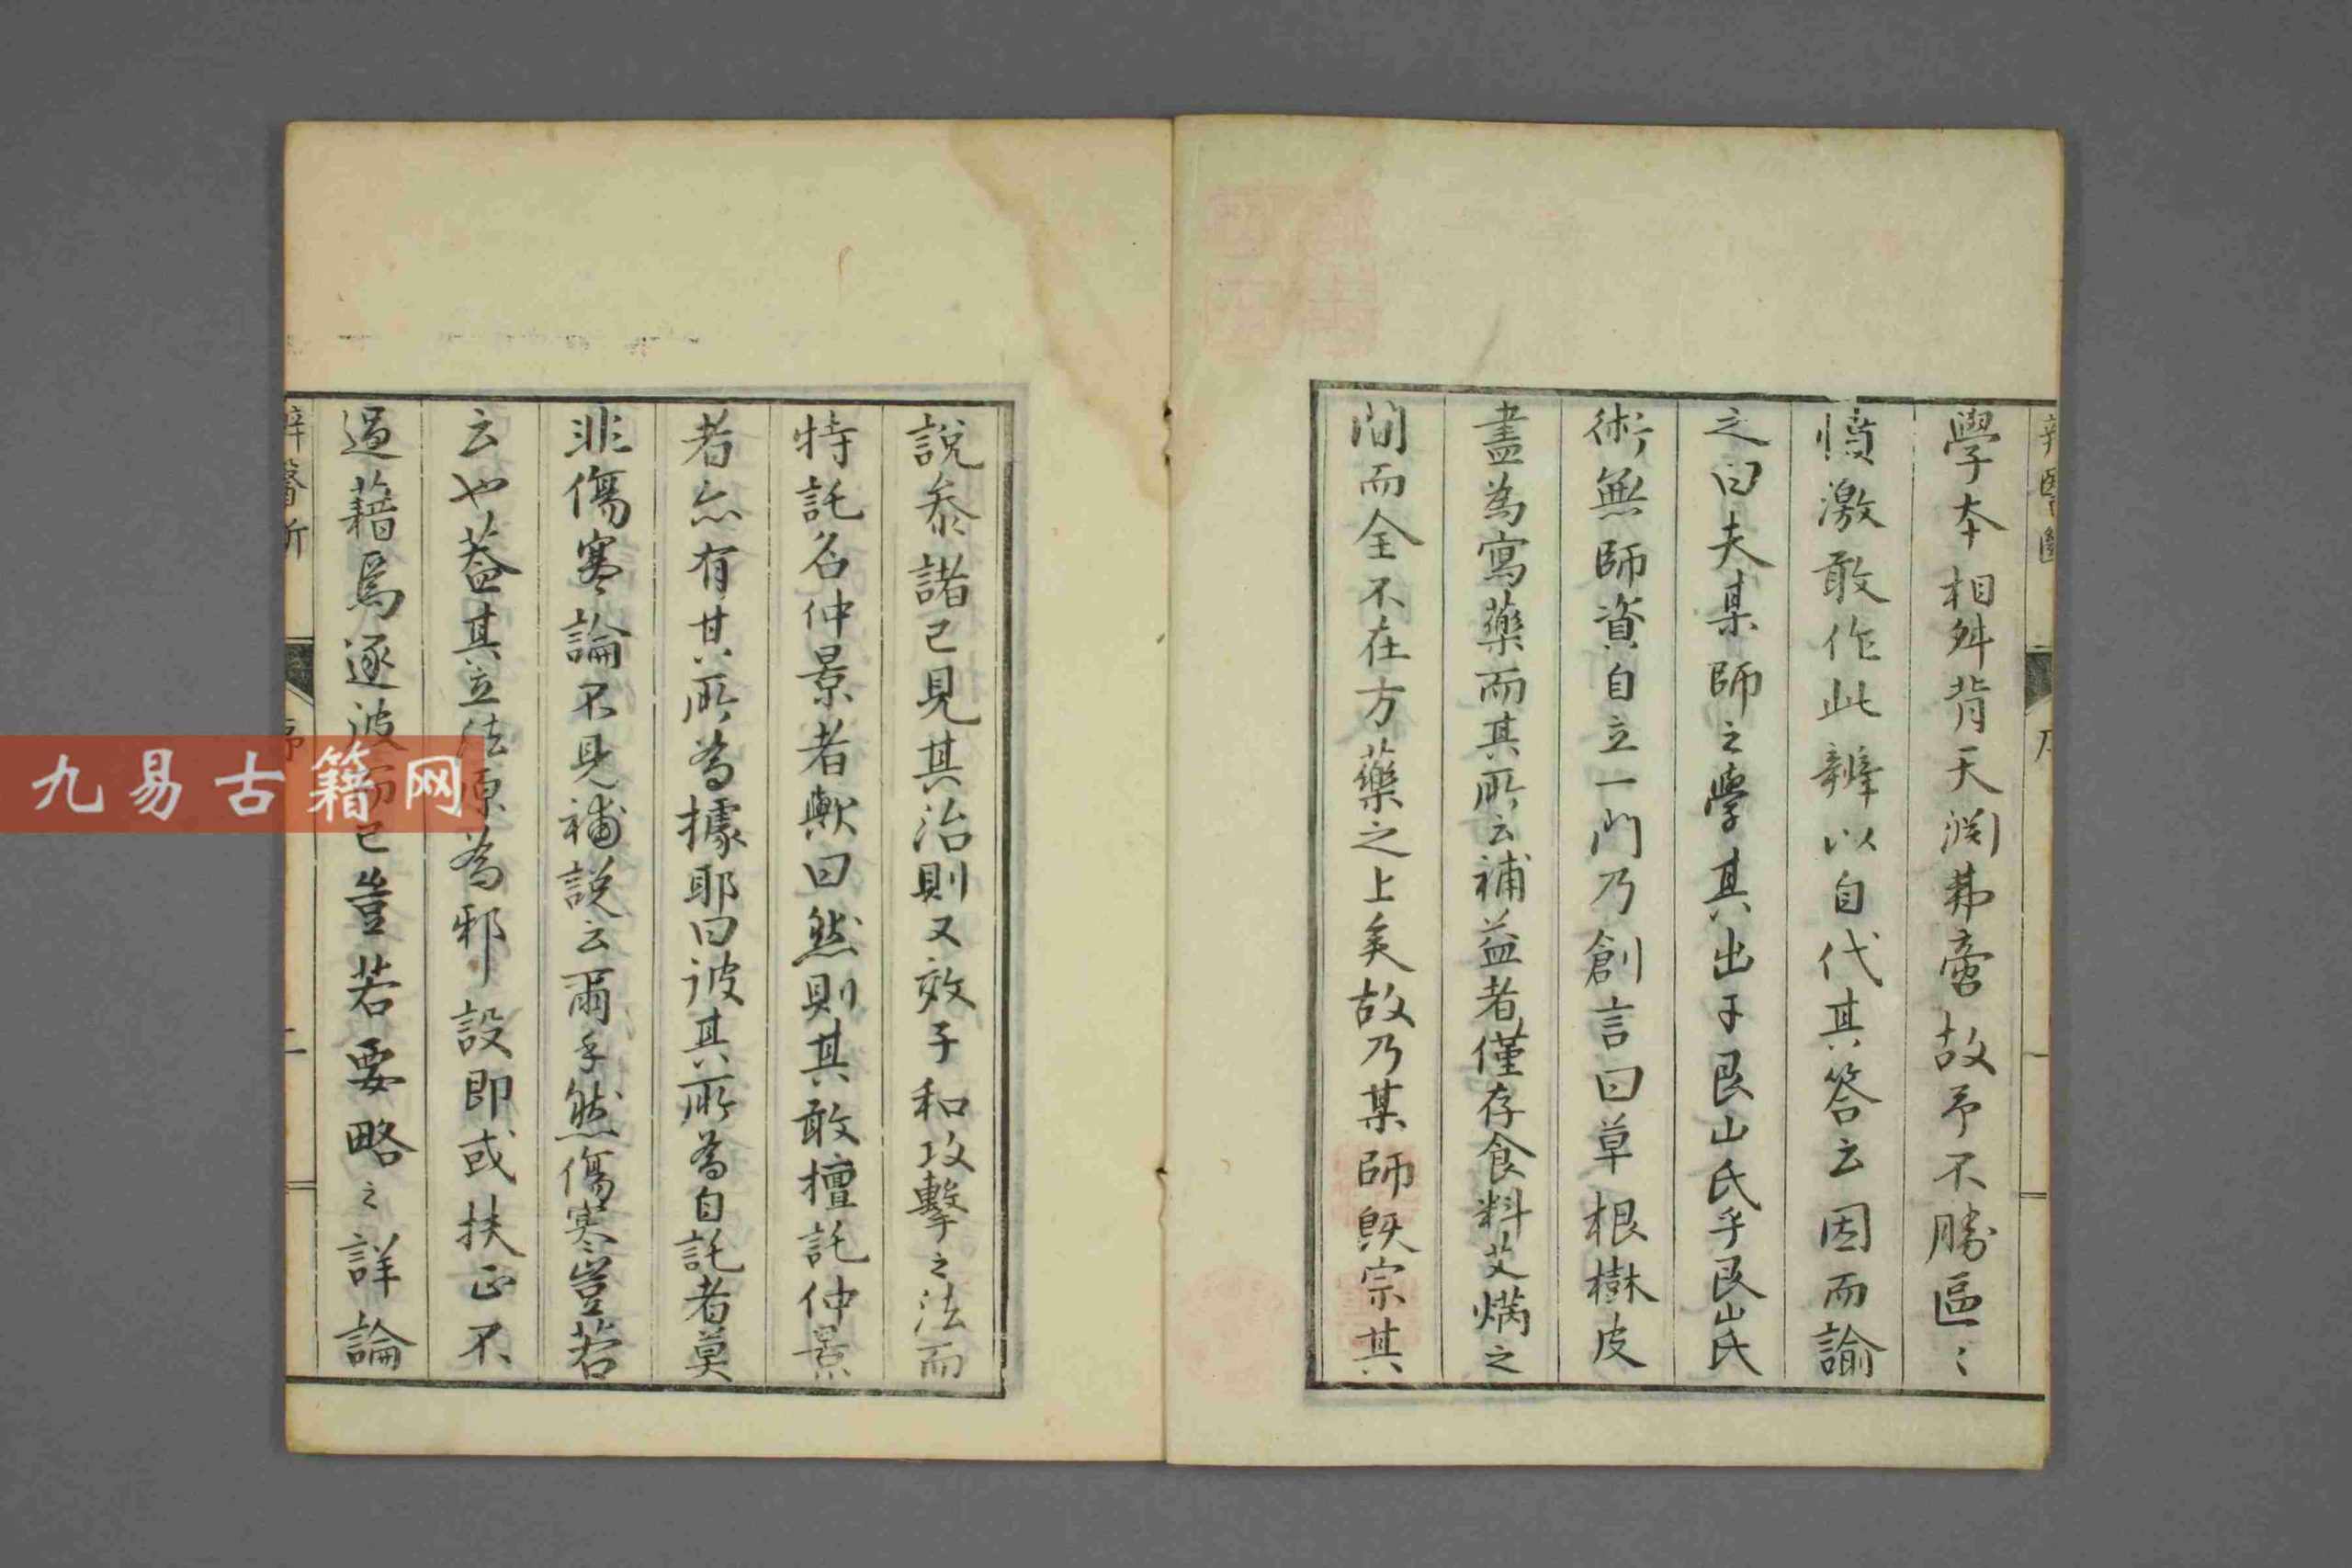 學本相舛背天淵弗啻故予不勝區〻
憤激敢作此辨以自代其答云因而諭
之曰夫某師之學其出于艮山氏乎艮山氏
術無師資自立一門乃創言曰草根樹皮
盡為寫藥而其所云補益者僅存食料艾焫之
間而全不在方藥之上矣故乃某師既宗其
說叅諸已見其治則又效子和攻擊之法而
特託名仲景者歟曰然則其敢擅託仲景
者亦有其所為據耶曰彼其所為自託者莫
非傷寒論不見補說云爾乎然傷寒豈若
云也蓋其立法原為邪設即或扶正不
過藉焉逐彼而已豈若要略之詳論
辨醫斷
序
二
九易古籍网